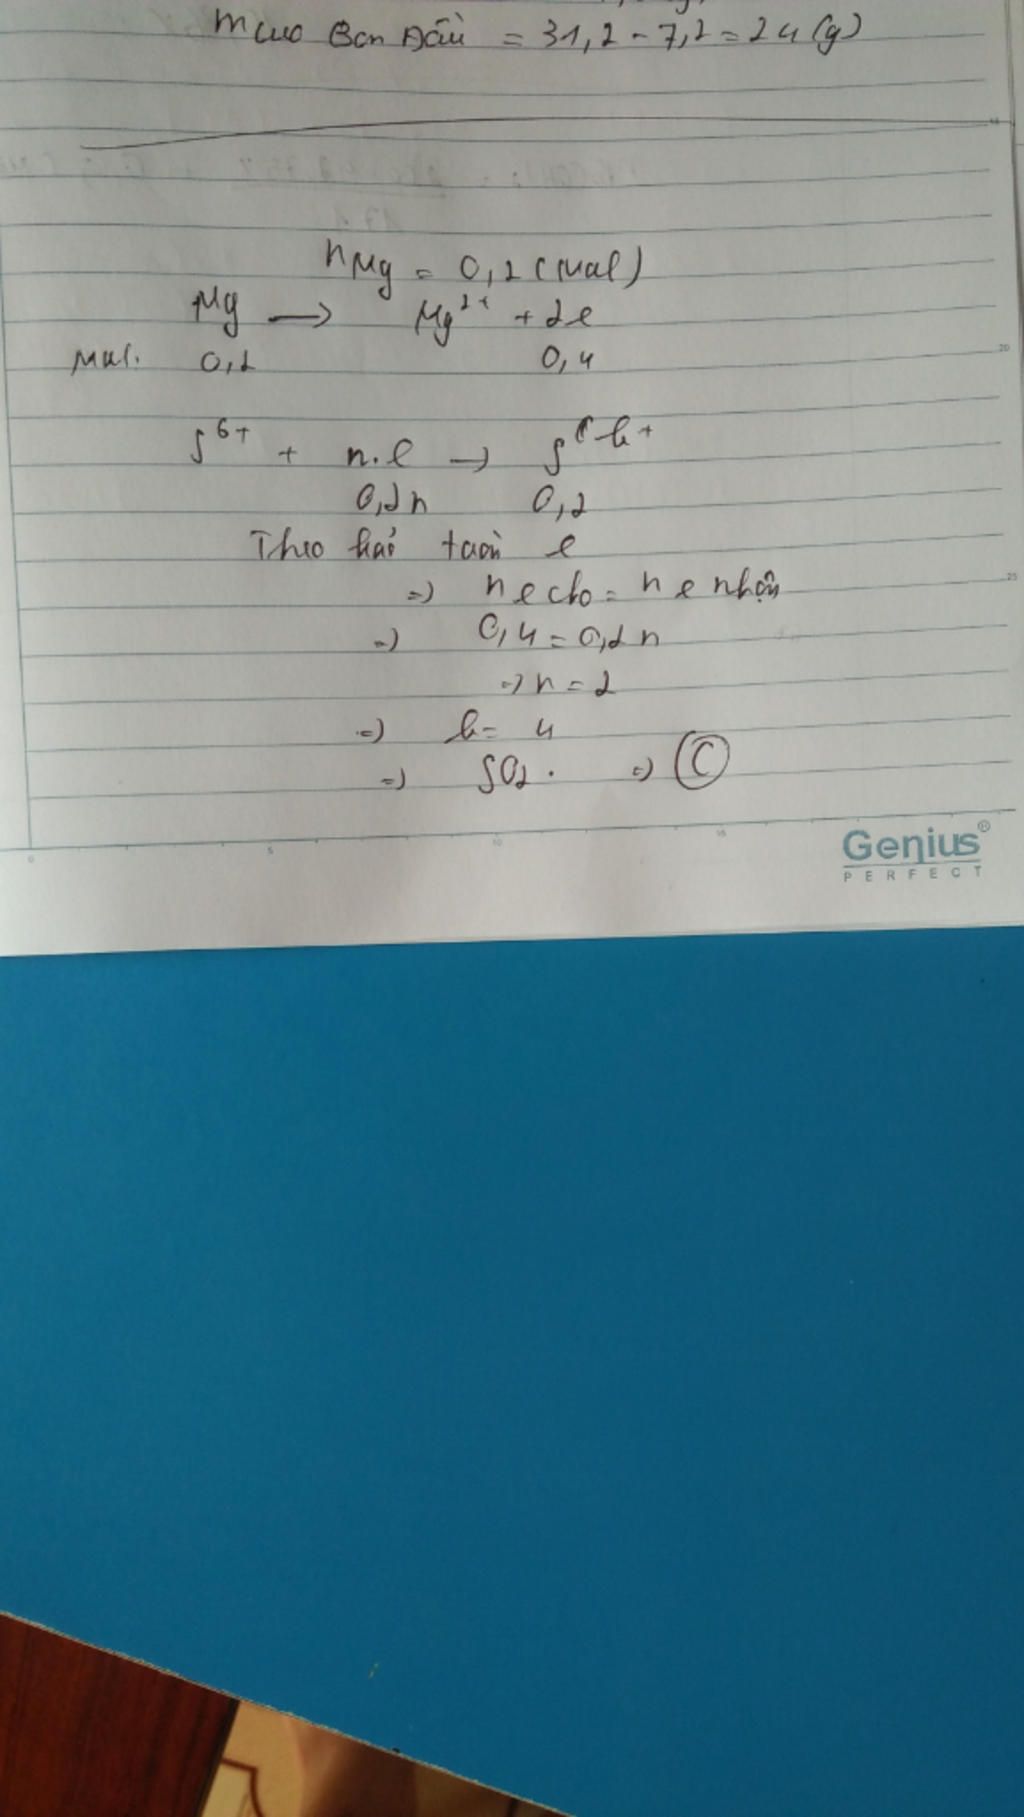 mCuO Ban Đầu = 31,2 - 7,2 = 24 (g)
nMg = 0,2 (mol)
Mg → Mg²⁺ + 2e
mol. 0,2 0,4
S⁶⁺ + n.e → S
0,2n 0,2
Theo bảo toàn e
=> n e cho = n e nhận
=> 0,4 = 0,2n
=> n = 2
=> 4
=> SO2. => C
Genius®
PERFECT